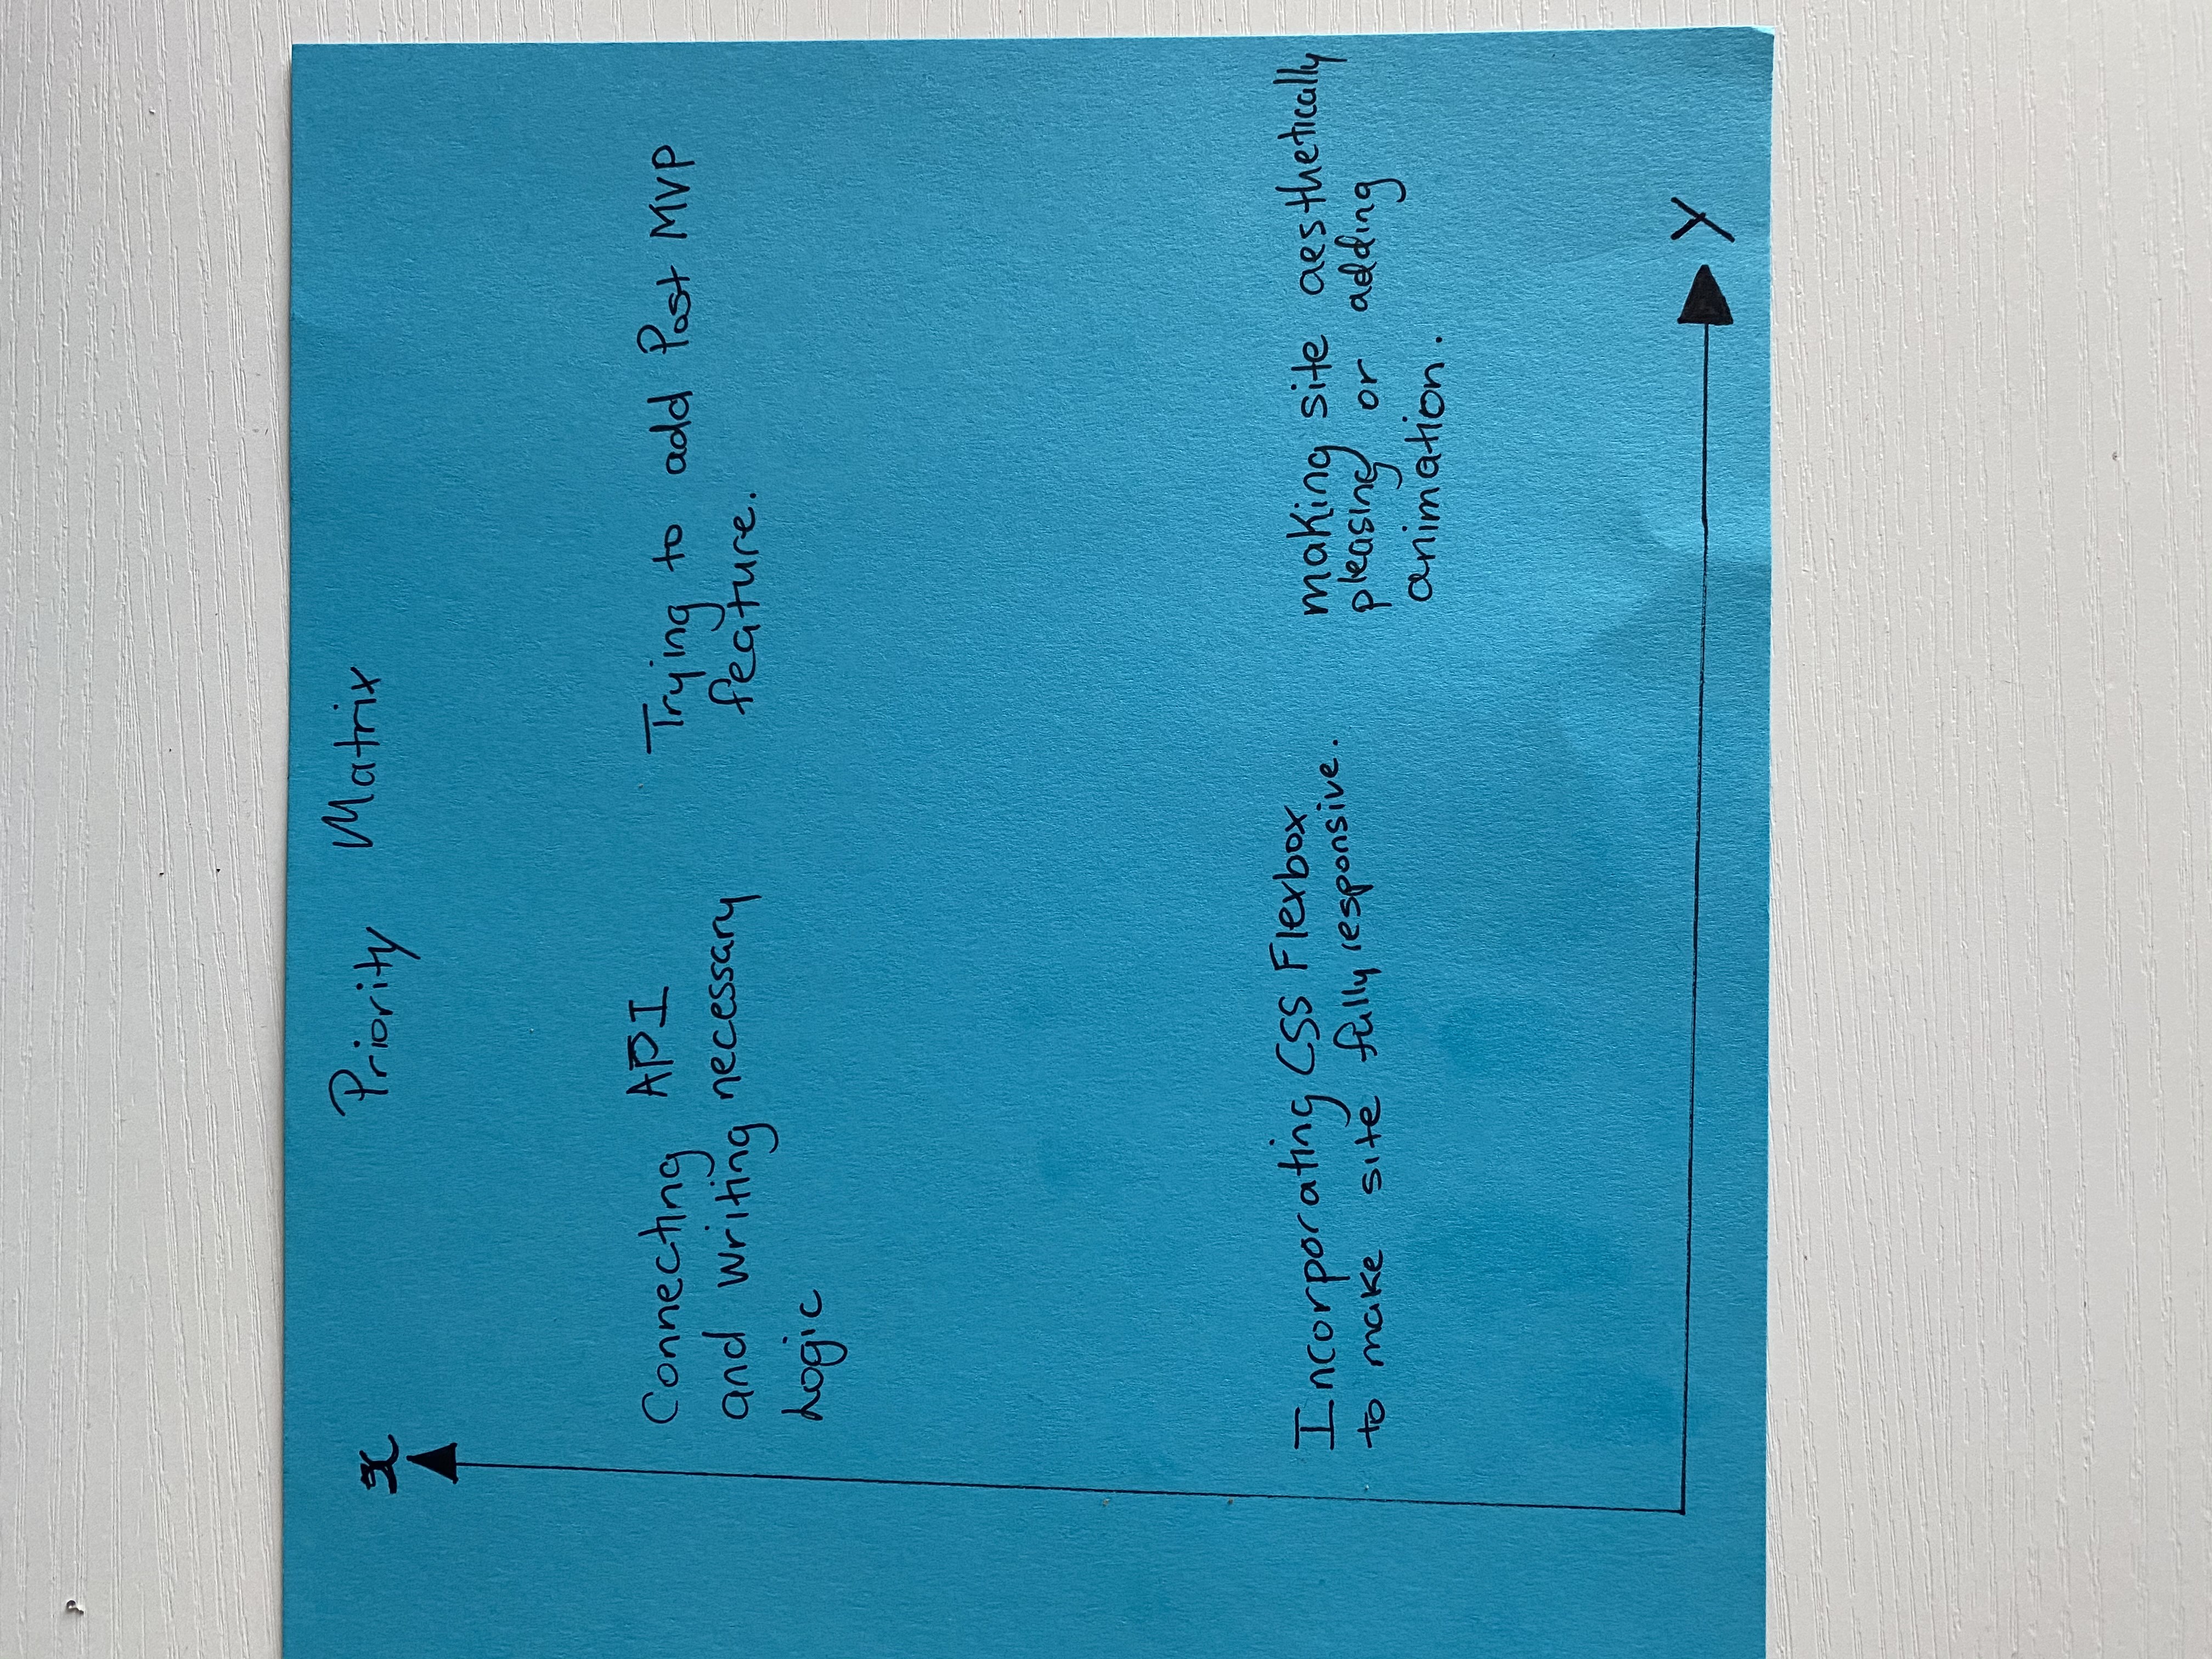 Priority Matrix
x
Connecting API
and writing necessary
Logic
Trying to add Post MVP
feature.
Incorporating CSS Flexbox
to make site fully responsive.
making site aesthetically
pleasing or adding
animation.
Y